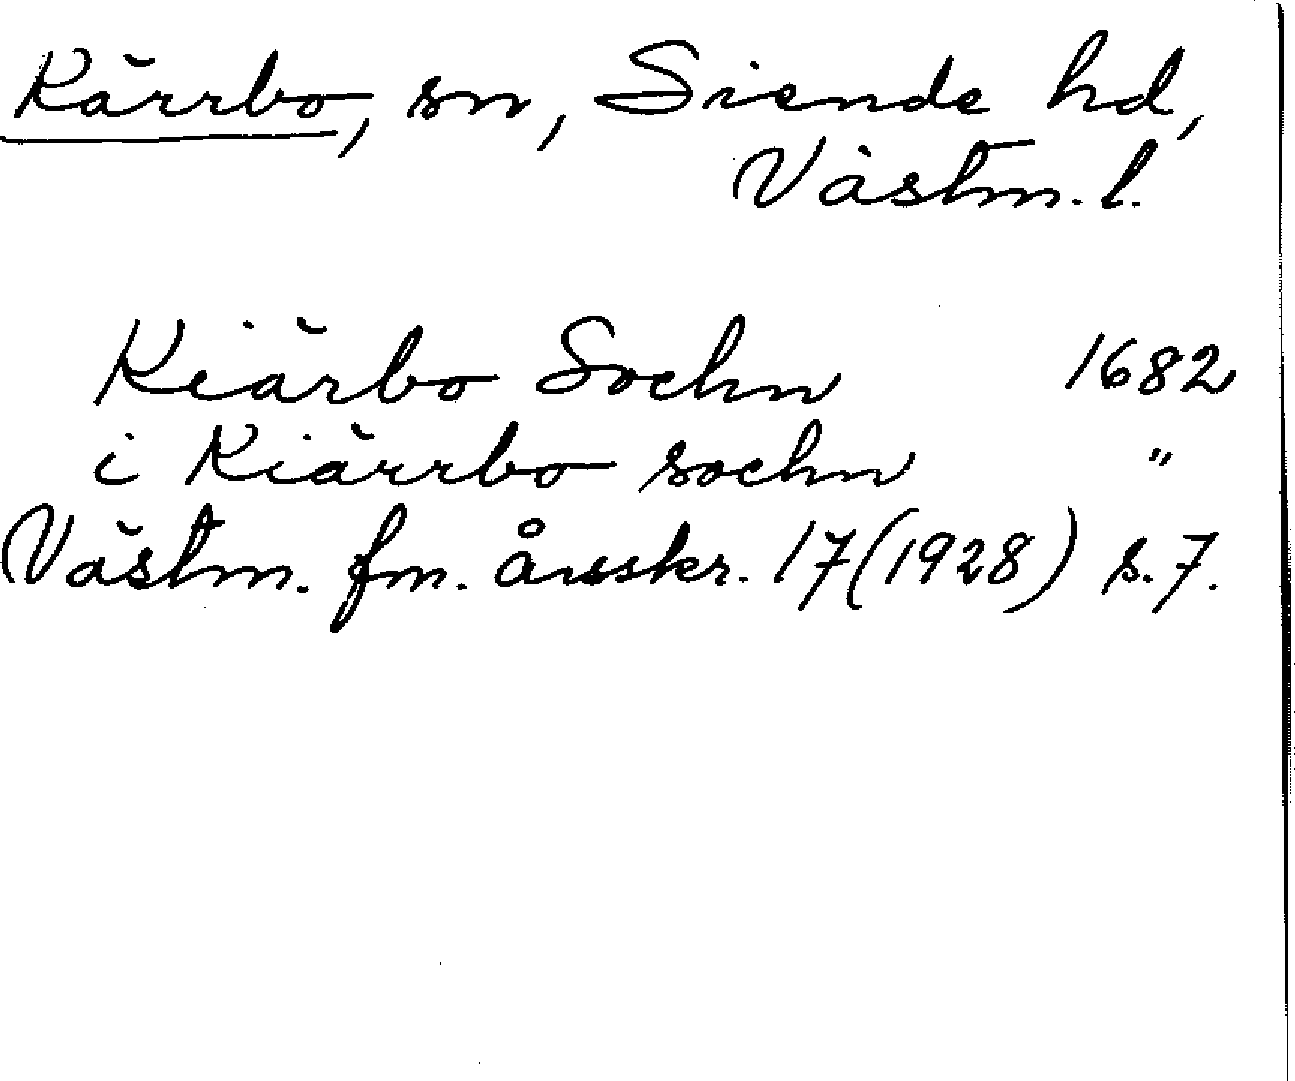 Kärrbo, sn, Siende hd,
Västm. l.
Kiärbo Sochn 1682
i Kiärrbo sochn "
Västm. fm. årsskr. 17 (1928) s. 7.